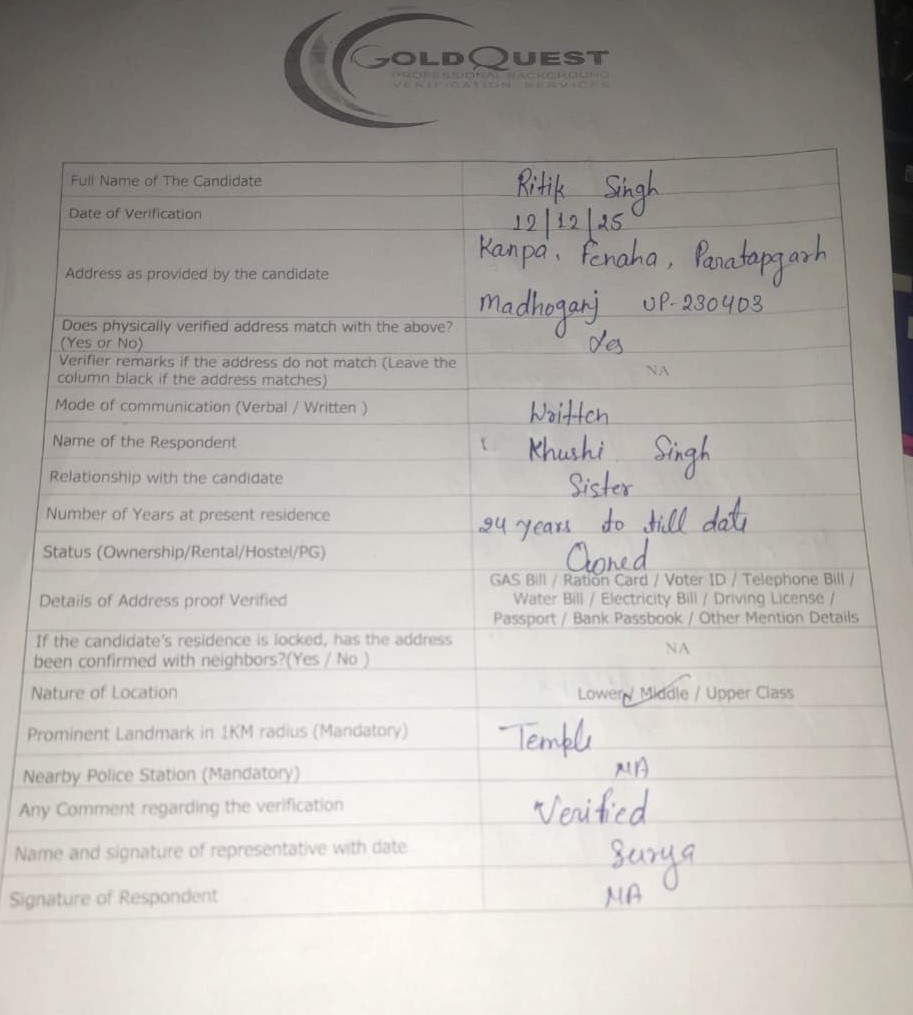 GOLDQUEST
PROFESSIONAL BACKGROUND
VERIFICATION SERVICES
Full Name of The Candidate Ritik Singh
Date of Verification 12/12/25
Address as provided by the candidate Kanpa, Fenaha, Paratapgarh
Madhoganj UP-230403
Does physically verified address match with the above?
(Yes or No) Yes
Verifier remarks if the address do not match (Leave the
column black if the address matches) NA
Mode of communication (Verbal / Written ) Written
Name of the Respondent Khushi Singh
Relationship with the candidate Sister
Number of Years at present residence 24 years to till date
Status (Ownership/Rental/Hostel/PG) Owned
Details of Address proof Verified GAS Bill / Ration Card / Voter ID / Telephone Bill /
Water Bill / Electricity Bill / Driving License /
Passport / Bank Passbook / Other Mention Details
If the candidate's residence is locked, has the address
been confirmed with neighbors?(Yes / No ) NA
Nature of Location Lower/ Middle / Upper Class
Prominent Landmark in 1KM radius (Mandatory) Temple
Nearby Police Station (Mandatory) NA
Any Comment regarding the verification Verified
Name and signature of representative with date Surya
Signature of Respondent NA